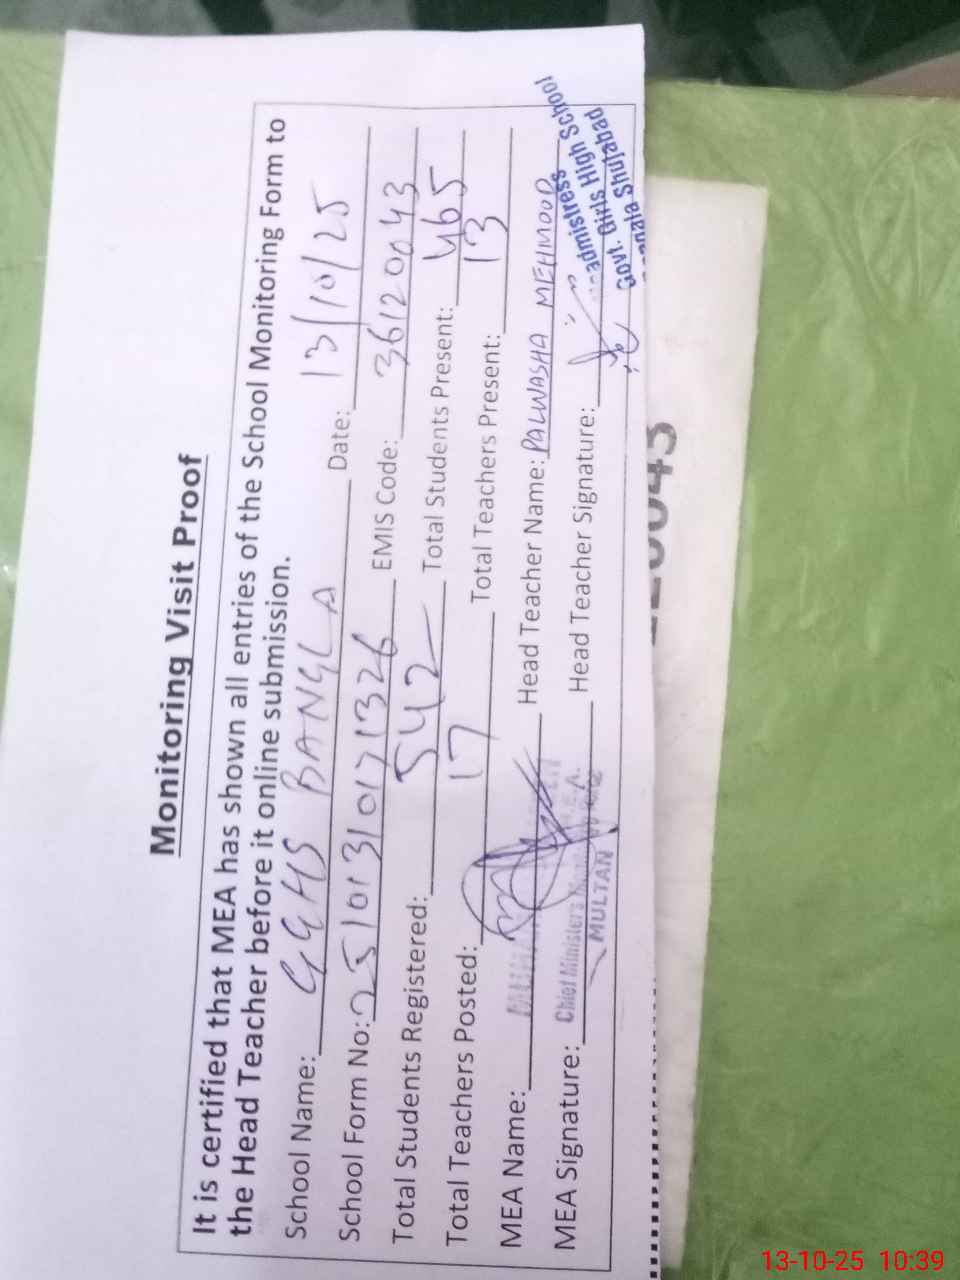 Monitoring Visit Proof
It is certified that MEA has shown all entries of the School Monitoring Form to
the Head Teacher before it online submission.
School Name: GGHS BANGLA Date: 13/10/25
School Form No: 25101310171326 EMIS Code: 36120043
Total Students Registered: 542 Total Students Present: 465
Total Teachers Posted: 17 Total Teachers Present: 13
MEA Name: Head Teacher Name: PALWASHA MEHMOOD
MEA Signature: Head Teacher Signature:
Chief Minister's
MULTAN
Govt. Girls High School
Shujabad
13-10-25 10:39